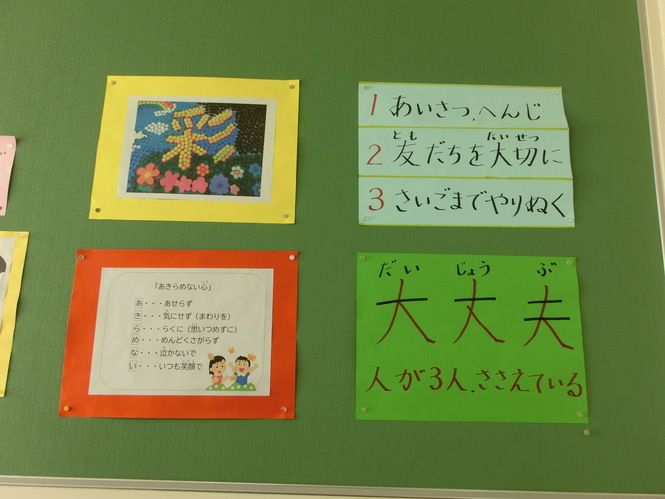 彩
1 あいさつ、へんじ
とも たいせつ
2 友だちを大切に
3 さいごまでやりぬく
「あきらめない心」
あ・・・あせらず
き・・・気にせず（まわりを）
ら・・・らくに（思いつめずに）
め・・・めんどくさがらず
な・・・泣かないで
い・・・いつも笑顔で
だい じょう ぶ
大丈夫
人が3人、ささえている